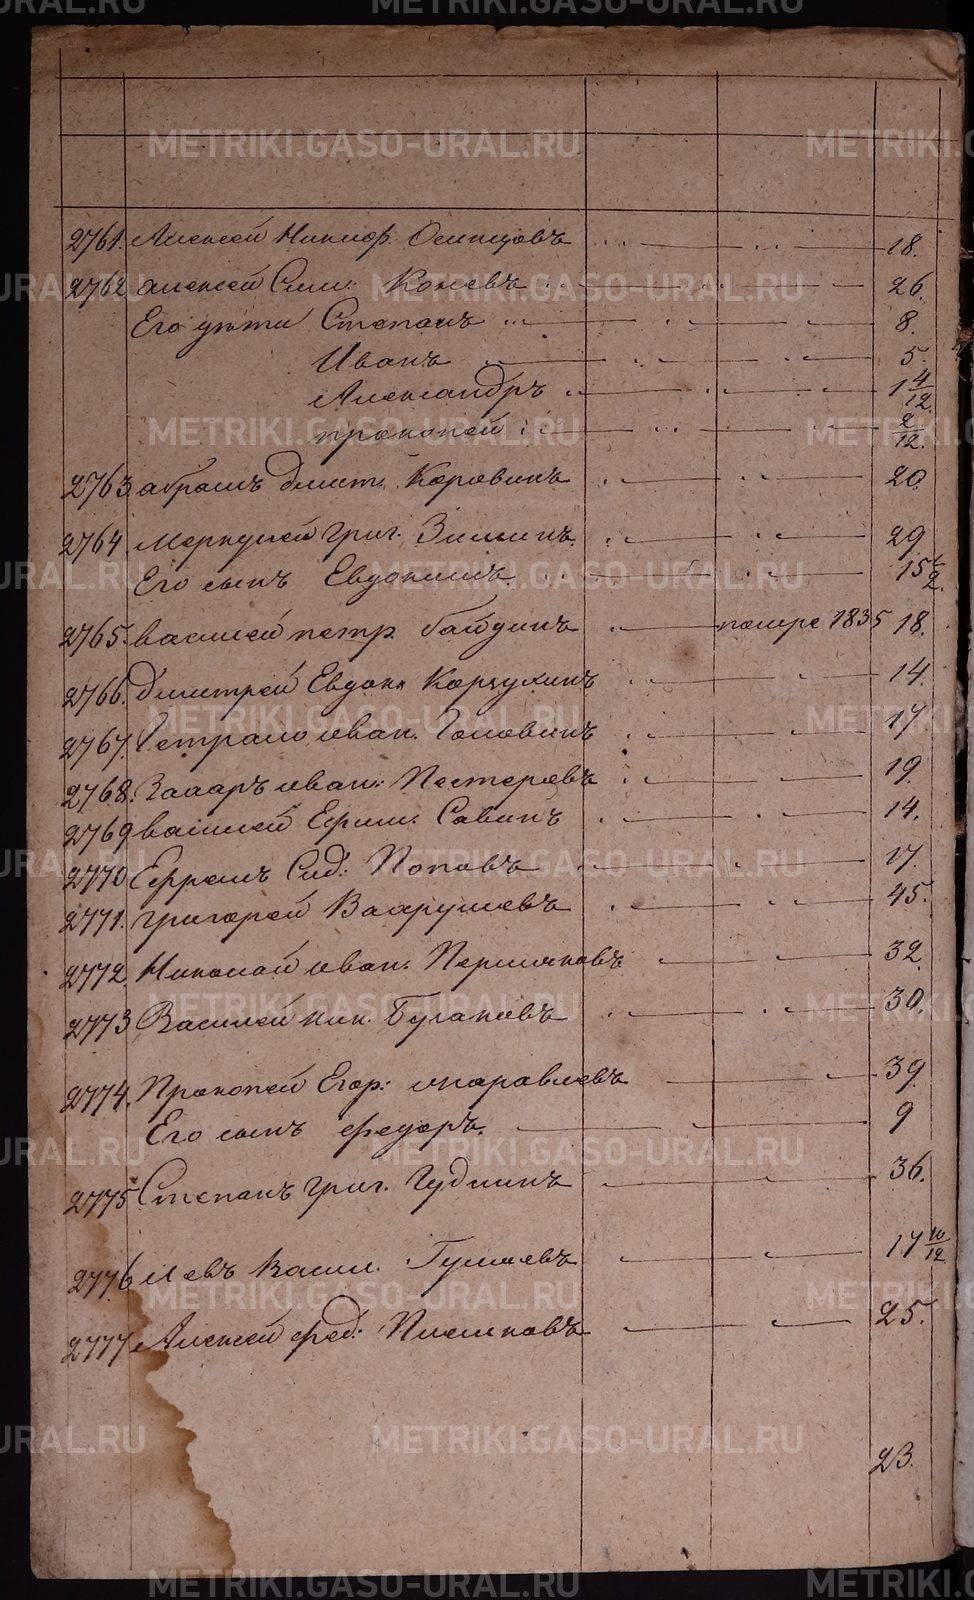 METRIKI.GASO-URAL.RU
2761. Алексей Никиф. Осинцовъ 18.
2762 алексей Сим: Коневъ 26.
Его дѣти Степанъ 8.
Иванъ 5.
Александръ 1 4/12.
прокопей 2/12.
2763 абрамъ дмит. Коровинъ 20.
2764. меркулей Григ. Зиминъ. 29
Его сынъ Евдокимъ. 15 1/2.
2765. василей петр. байдинъ помре 1835 18.
2766. дмитрей Евдок Корзухинъ 14.
2767. иван. Головинъ 17.
2768. Захаръ иван: Пестеревъ 19.
2769 василей Ефим. Савинъ 14.
2770 Ефремъ Сид: Поповъ 17.
2771. григорей Вахрушевъ 45.
2772. Николай иван. Пермяковъ 32.
2773 Василей ник. Бугаковъ 30.
2774. Прокопей Егор: 39.
Его сынъ федоръ. 9
2775 Степанъ григ. Гудинъ 36.
2776 Левъ Васил. Гуляевъ 17 10/12
2777 Алексей фед: Плешковъ 25.
23.